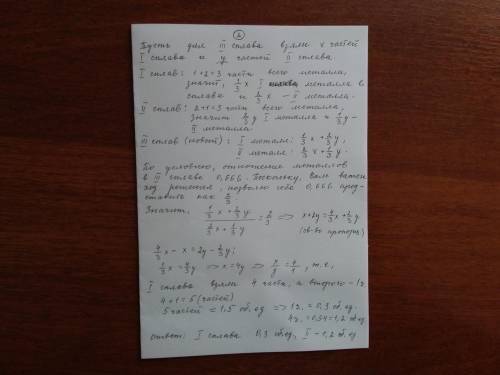 ②
Пусть для III сплава взяли x частей
I сплава и y частей II сплава.
I сплав: 1+2=3 части всего металла,
значит, 1/3 x I металла в
сплаве и 2/3 x – II металла.
II сплав: 2+1=3 части всего металла,
значит 2/3 y I металла и 1/3 y –
II металла.
III сплав (новый): I металл: 1/3 x + 2/3 y;
II металл: 2/3 x + 1/3 y.
По условию, отношение металлов
в III сплаве 0,666. Поскольку, Вам важен
ход решения, позволю себе 0,666 пред-
ставить как 2/3.
Значит, (1/3 x + 2/3 y)/(2/3 x + 1/3 y) = 2/3 => x+2y = 4/3 x + 2/3 y
(св-во пропорц)
4/3 x – x = 2y – 2/3 y;
1/3 x = 4/3 y => x = 4y => x/y = 4/1, т.е.,
I сплава взяли 4 части, а второго – 1ч.
4+1=5 (частей)
5 частей = 1,5 об.ед. => 1ч. = 0,3 об.ед.
4ч. = 0,3·4 = 1,2 об.ед
Ответ: I сплава 0,3 об.ед, II – 1,2 об.ед.